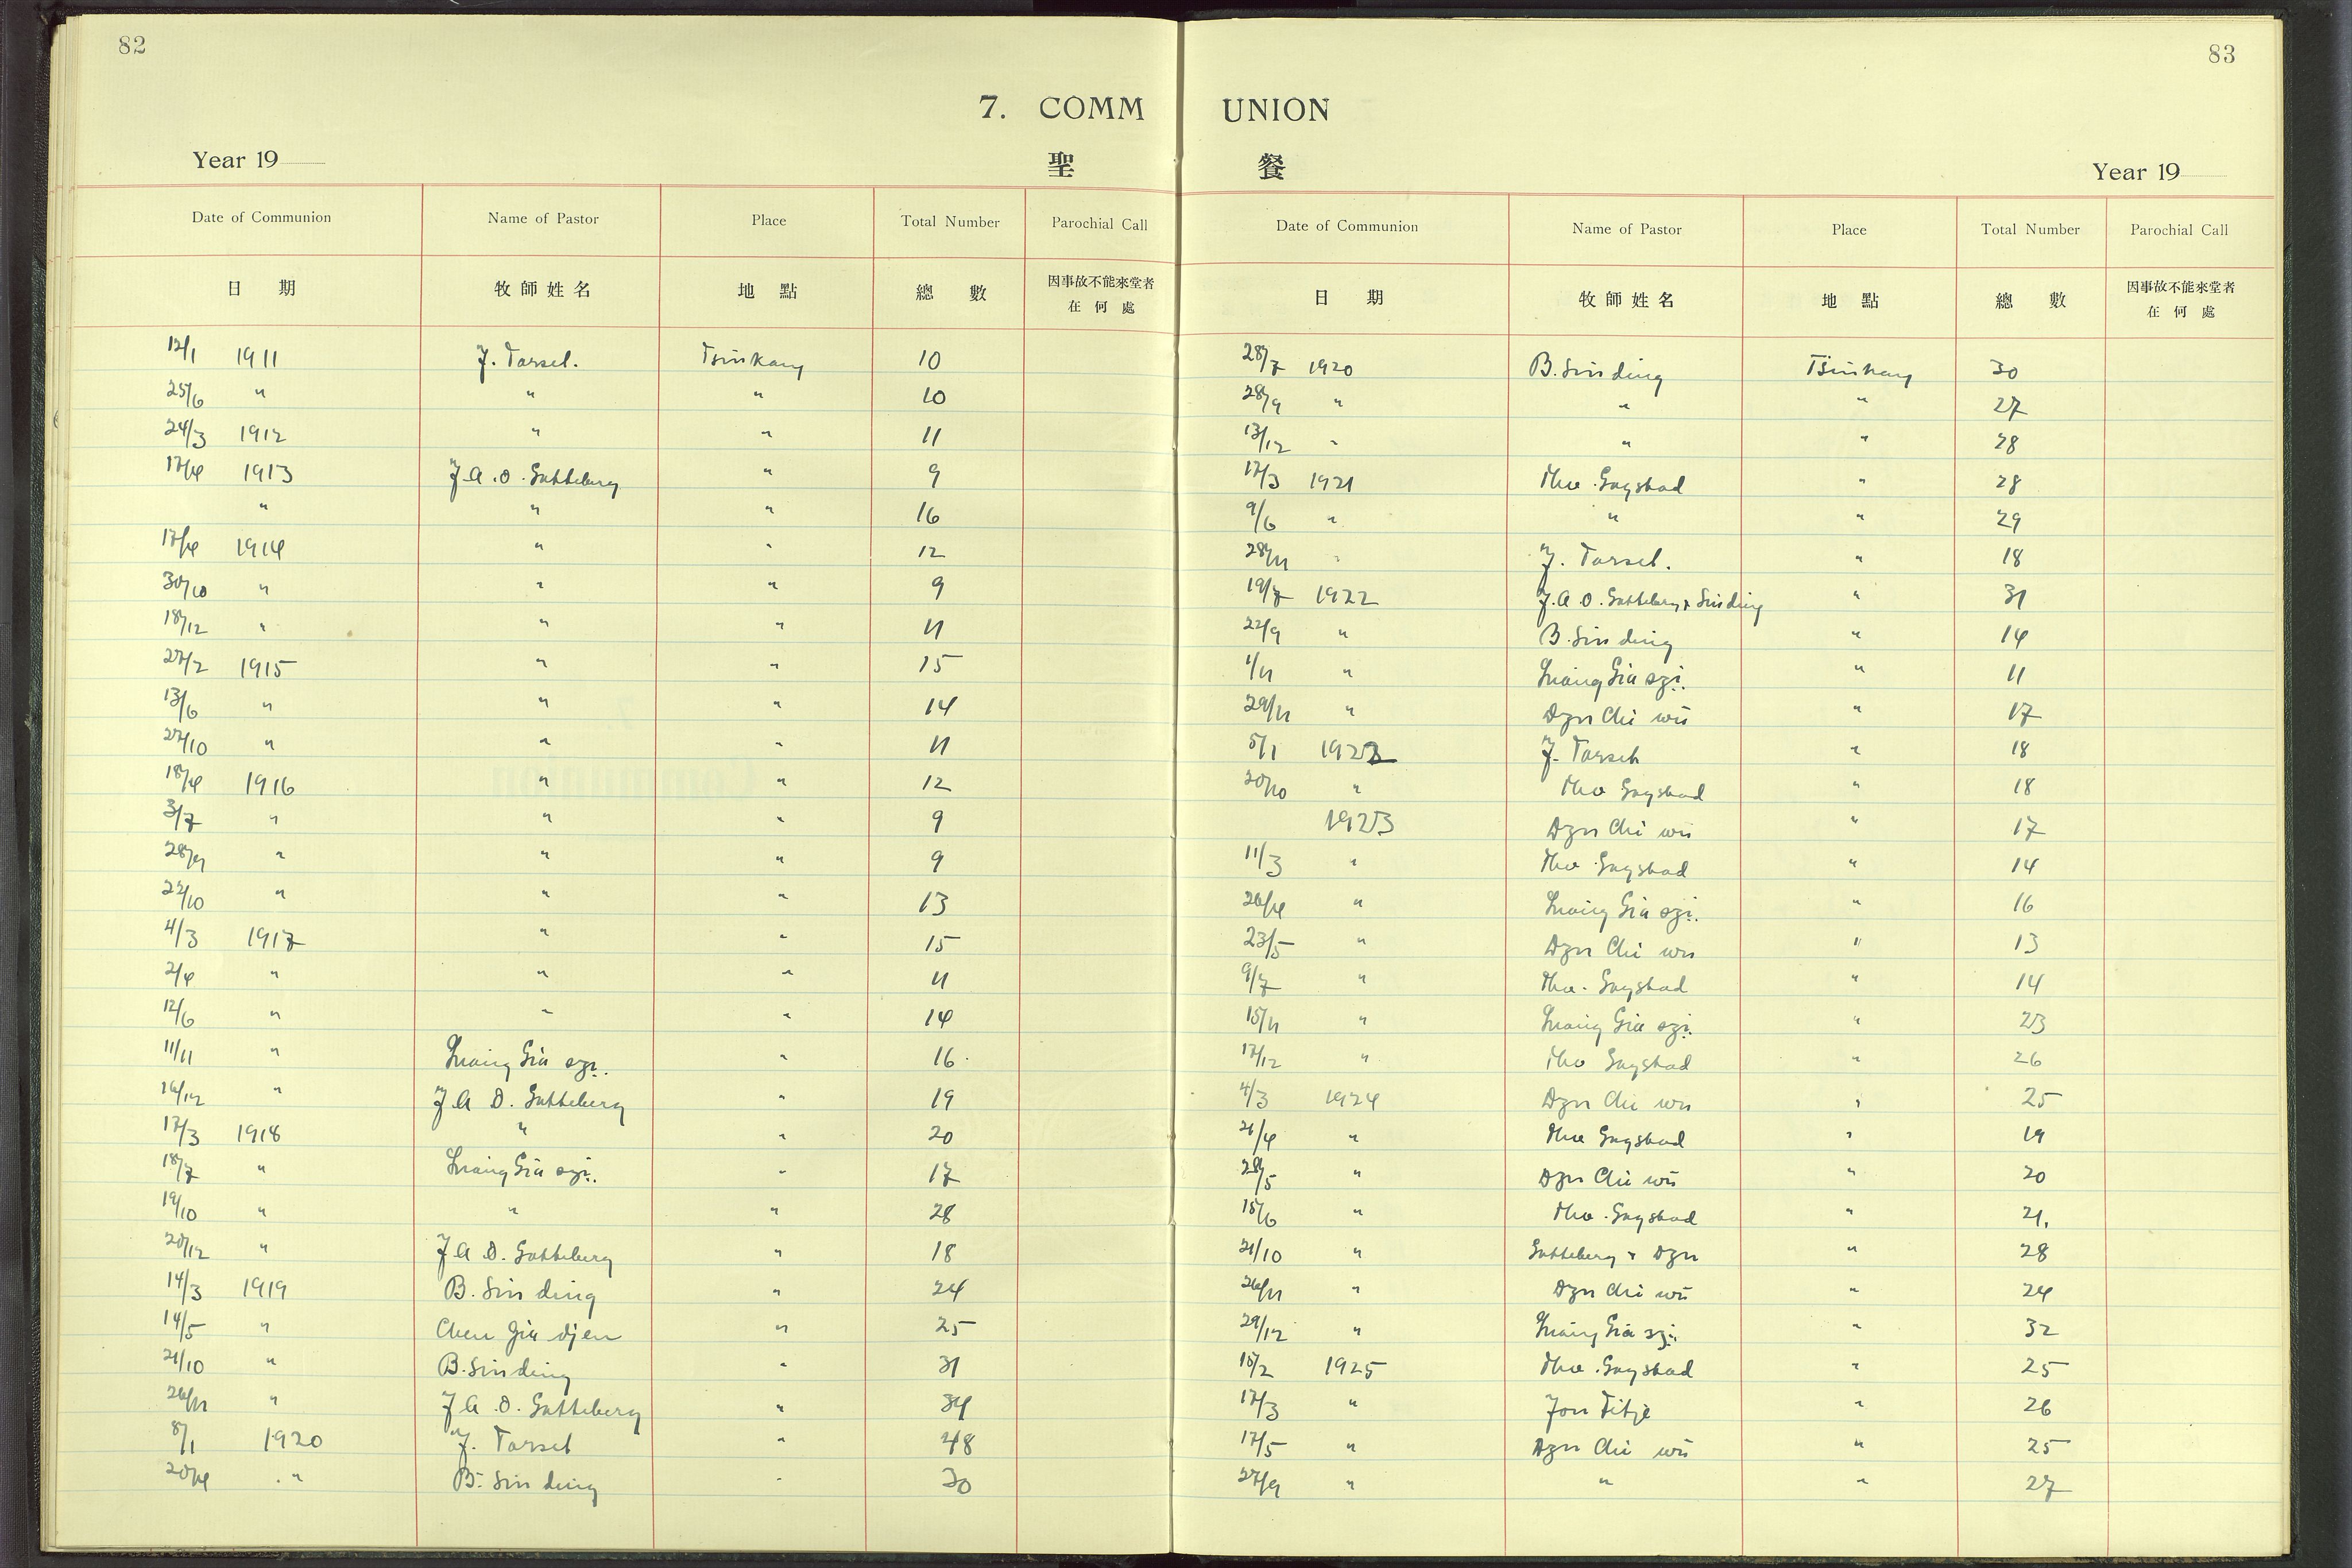 82
7. COMM
Year 19
聖
Date of Communion Name of Pastor Place Total Number Parochial Call
日 期 牧師姓名 地 點 總 數 因事故不能來堂者
在何處
12/1 1911 J. Tørset. Tsinkang 10
25/6 " " " 10
24/3 1912 " " 11
17/4 1913 J.A.O. Gotteberg " 9
" " " 16
17/4 1914 " " 12
30/10 " " " 9
18/12 " " " 11
27/2 1915 " " 15
13/6 " " " 14
27/10 " " " 11
18/4 1916 " " 12
3/7 " " " 9
28/9 " " " 9
22/10 " " " 13
4/3 1917 " " 15
2/4 " " " 11
12/6 " " " 14
11/11 " Liang Gia szi. " 16
16/12 " J A O. Gotteberg " 19
17/3 1918 " " 20
18/7 " Liang Gia szi. " 17
19/10 " " " 28
20/12 " J A O. Gotteberg " 18
14/3 1919 B. Sinding " 24
14/5 " Chen Gia djen " 25
21/10 " B. Sinding " 31
26/11 " J A. O. Gotteberg " 34
8/1 1920 J. Tørset " 48
20/4 " B. Sinding " 30
83
UNION
餐
Year 19
Date of Communion Name of Pastor Place Total Number Parochial Call
日 期 牧師姓名 地 點 總 數 因事故不能來堂者
在何處
28/7 1920 B. Sinding Tsinkang 30
28/9 " " " 27
13/12 " " " 28
17/3 1921 Tho. Gogstad " 28
9/6 " " " 29
28/11 " J. Tørset. " 18
19/7 1922 J.A.O. Gotteberg & Sinding " 31
22/9 " B. Sinding " 14
1/11 " Liang Gia szi. " 11
29/11 " Dzn Chi wu " 17
5/1 1922 J. Tørset " 18
20/10 " Tho Gogstad " 18
1923 Dzn Chi wu " 17
11/3 " Tho Gogstad " 14
26/4 " Liang Gia szi. " 16
23/5 " Dzn Chi wu " 13
9/7 " Tho. Gogstad " 14
15/11 " Liang Gia szi. " 23
17/12 " Tho Gogstad " 26
4/3 1924 Dzn Chi wu " 25
21/4 " Tho Gogstad " 19
28/5 " Dzn Chi wu " 20
15/6 " Tho. Gogstad " 21.
21/10 " Gotteberg & Dzn " 28
26/11 " Dzn Chi wu " 24
29/12 " Liang Gia szi. " 32
15/2 1925 Tho. Gogstad " 25
17/3 " Jon Fitje " 26
17/5 " Dzn Chi wu " 25
27/9 " " " 27